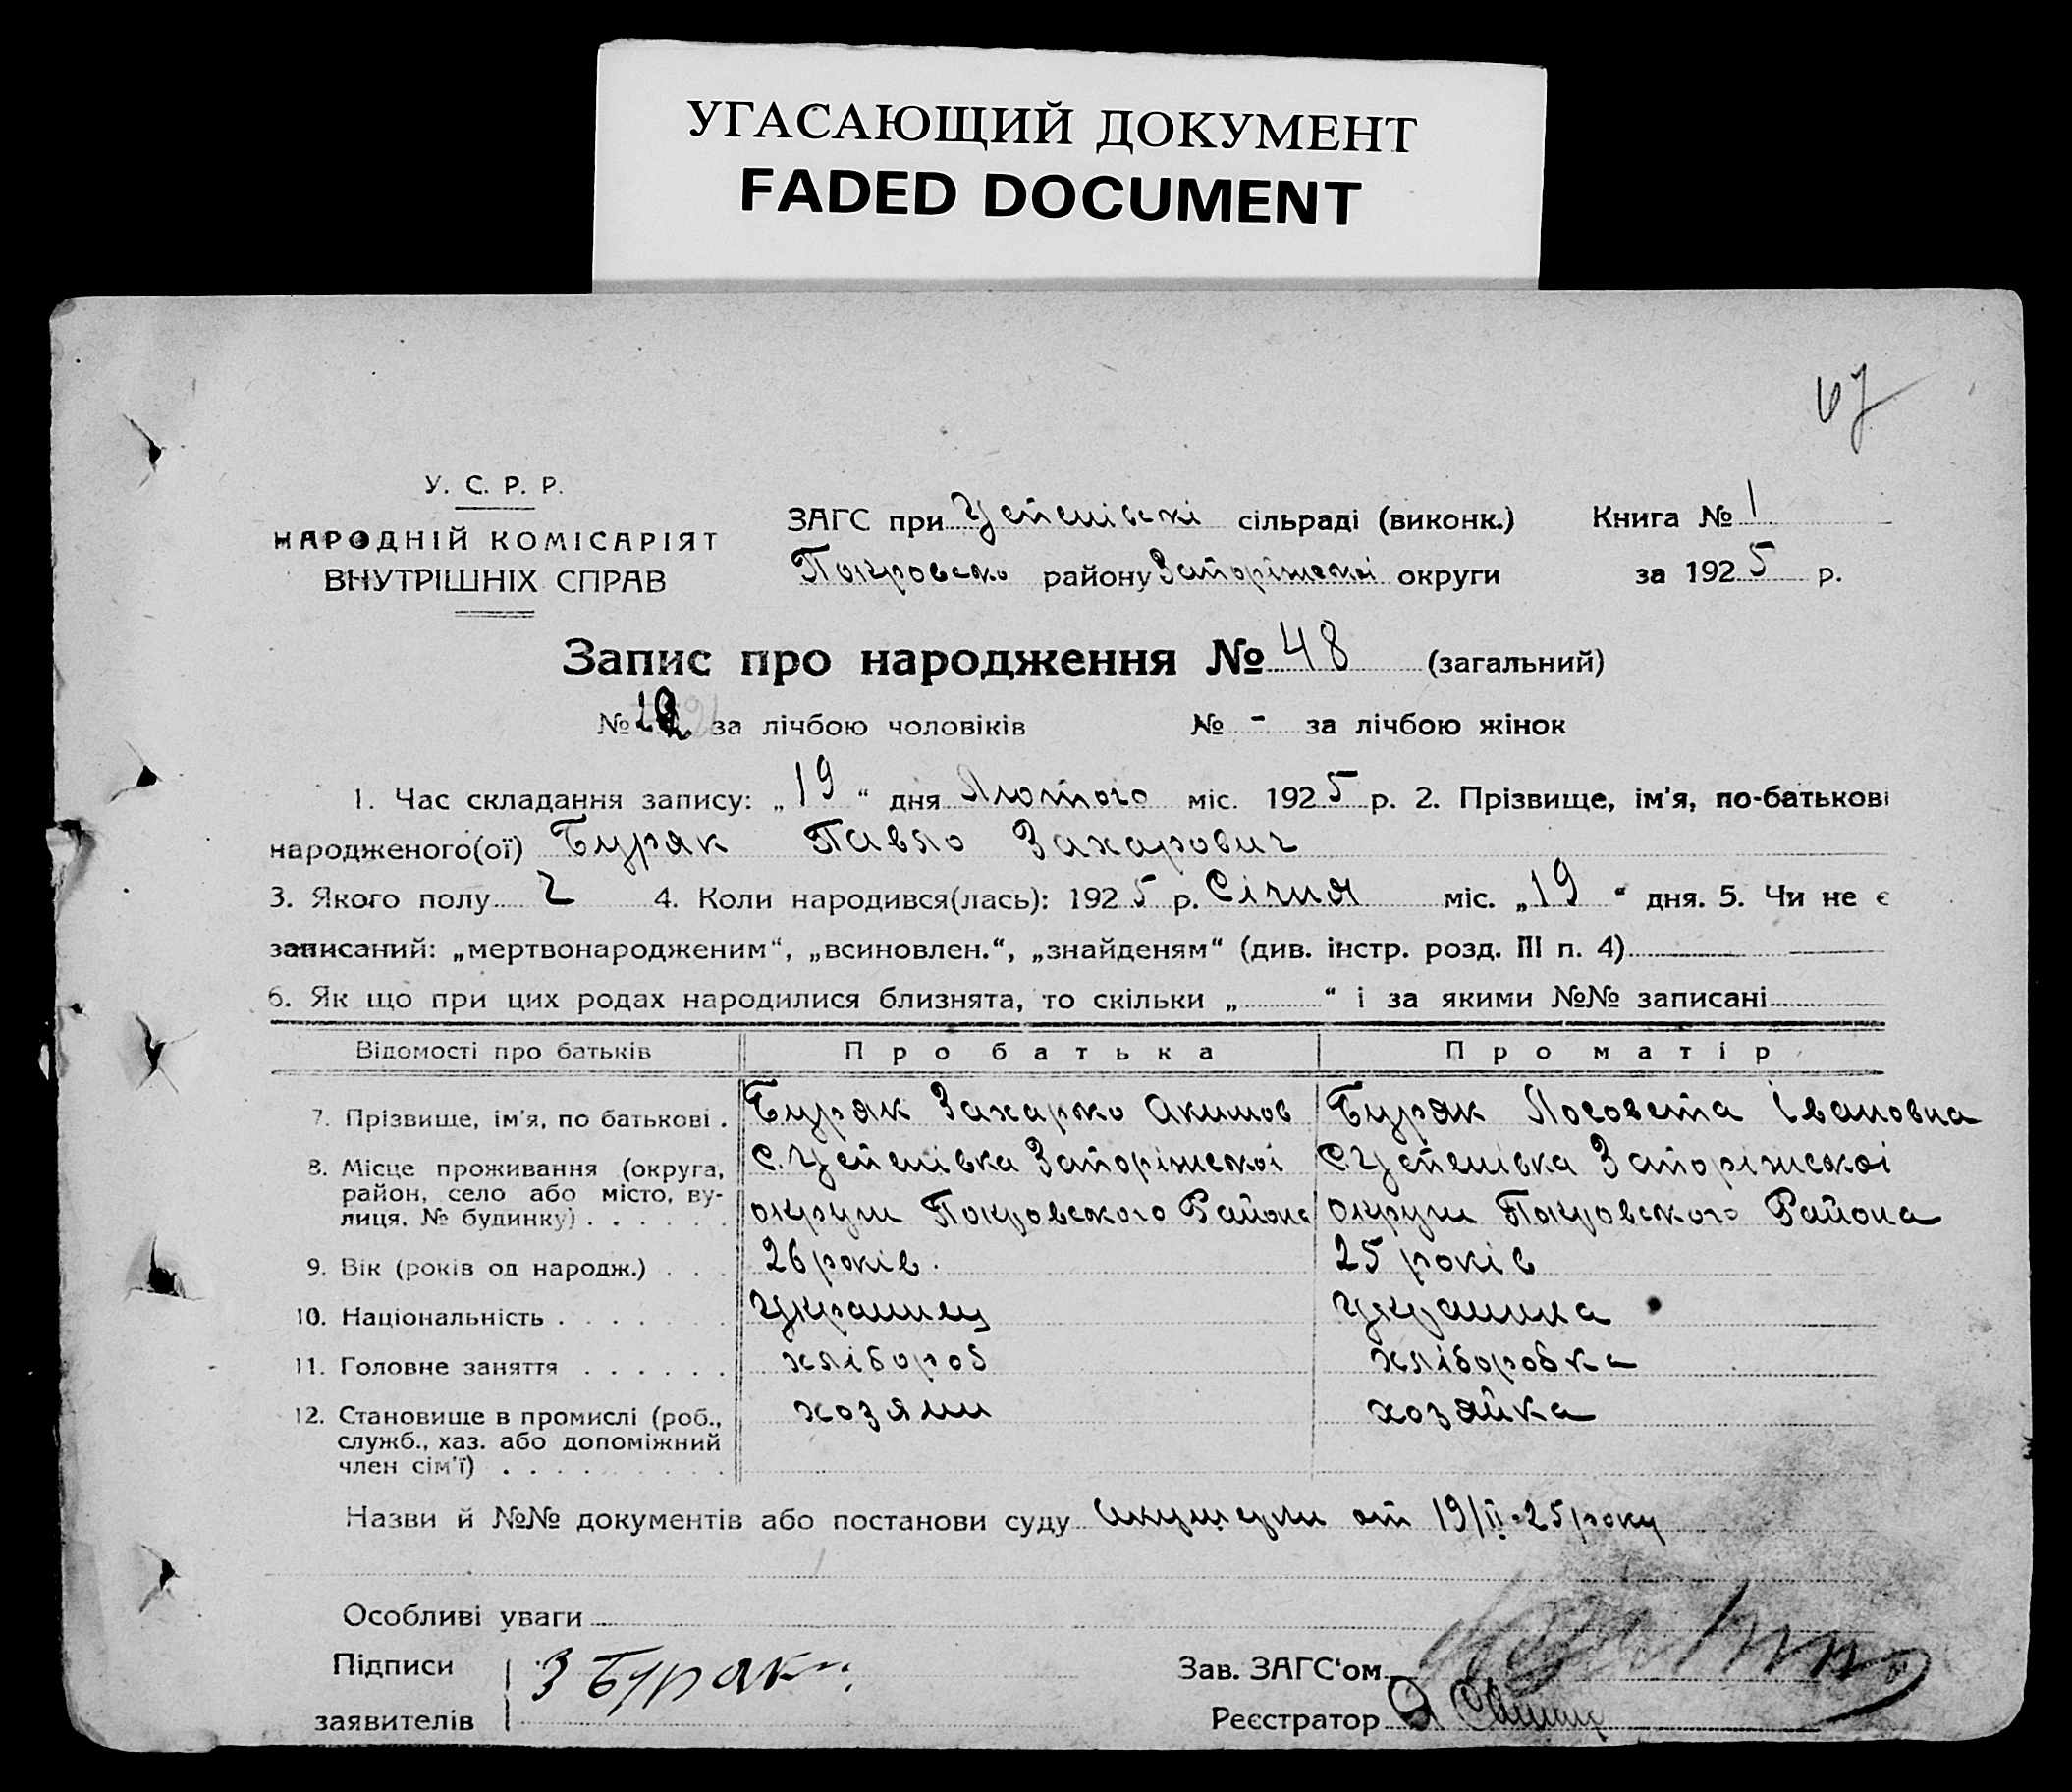 УГАСАЮЩИЙ ДОКУМЕНТ
FADED DOCUMENT
67
У. С. Р. Р.
НАРОДНІЙ КОМІСАРІЯТ
ВНУТРІШНІХ СПРАВ
ЗАГС при Успенівскі сільраді (виконк.)
Покровско району Запоріжскої округи
Книга № 1
за 1925 р.
Запис про народження № 48 (загальний)
№ за лічбою чоловіків № - за лічбою жінок
1. Час складання запису: „19“ дня Лютого міс. 1925 р. 2. Прізвище, ім'я, по-батькові
народженого(ої) Буряк Павло Захарович
3. Якого полу ч 4. Коли народився(лась): 1925 р. Січня міс. „19“ дня. 5. Чи не є
записаний: „мертвонародженим“, „всиновлен.“, „знайденям“ (див. інстр. розд. III п. 4)
6. Як що при цих родах народилися близнята, то скільки „ “ і за якими №№ записані
Відомості про батьків Про батька Про матір
7. Прізвище, ім'я, по батькові . Буряк Захарко Акимов Буряк Лосовета Івановна
8. Місце проживання (округа, С. Успенівка Запоріжскої С. Успенівка Запоріжскої
район, село або місто, ву-
лиця, № будинку) . . . . . . округи Покровского Района округи Покровского Района
9. Вік (років од народж.) . . . 26 років. 25 років
10. Національність . . . . . . . Украинец Украинка
11. Головне заняття . . . . . . хлібороб хліборобка
12. Становище в промислі (роб., хозяин хозяйка
служб., хаз. або допоміжний
член сім'ї) . . . . . . . . .
Назви й №№ документів або постанови суду Акушерки от 19/II-25 року
Особливі уваги
Підписи З Буряк
заявителів
Зав. ЗАГС'ом
Реєстратор